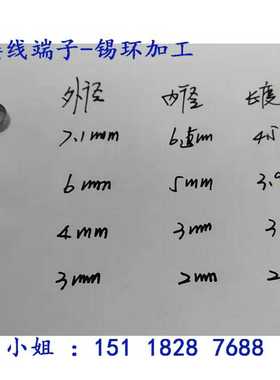 线端子-锡环加工
外径 内径 长度
7.1mm 4.5
6mm 5mm 3.
4mm 3mm 3
3mm 2mm 2
小姐 : 151 1828 7688